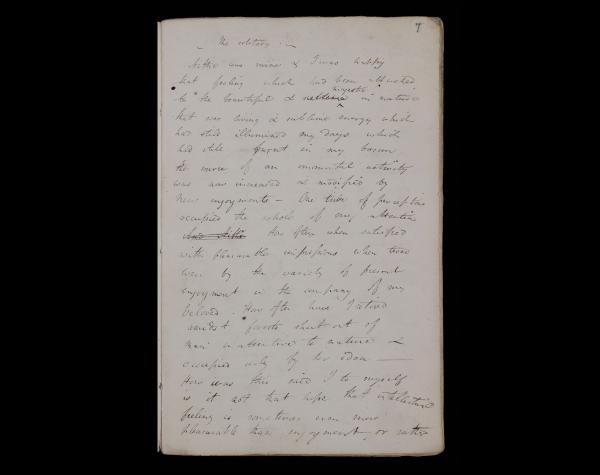 7
The solitary
was mine & I was happy
that feeling which had been attached
to the beautiful & majestic in nature
that was living & sublime energy which
had still illumined my days which
had still burnt in my bosom
the move of an immortal activity
was now increased & modified by
new enjoyments – One tribe of perceptions
occupied the whole of my attention
How often when satisfied
with pleasurable impressions when
by the variety of present
enjoyment in the company of my
beloved. How often have I retired
amidst forests shut out of
man inattentive to nature &
occupied only by her idea —
How was this said I to myself
is it not that hope that intellectual
feeling is sometimes even more
pleasurable than enjoyment, or rather